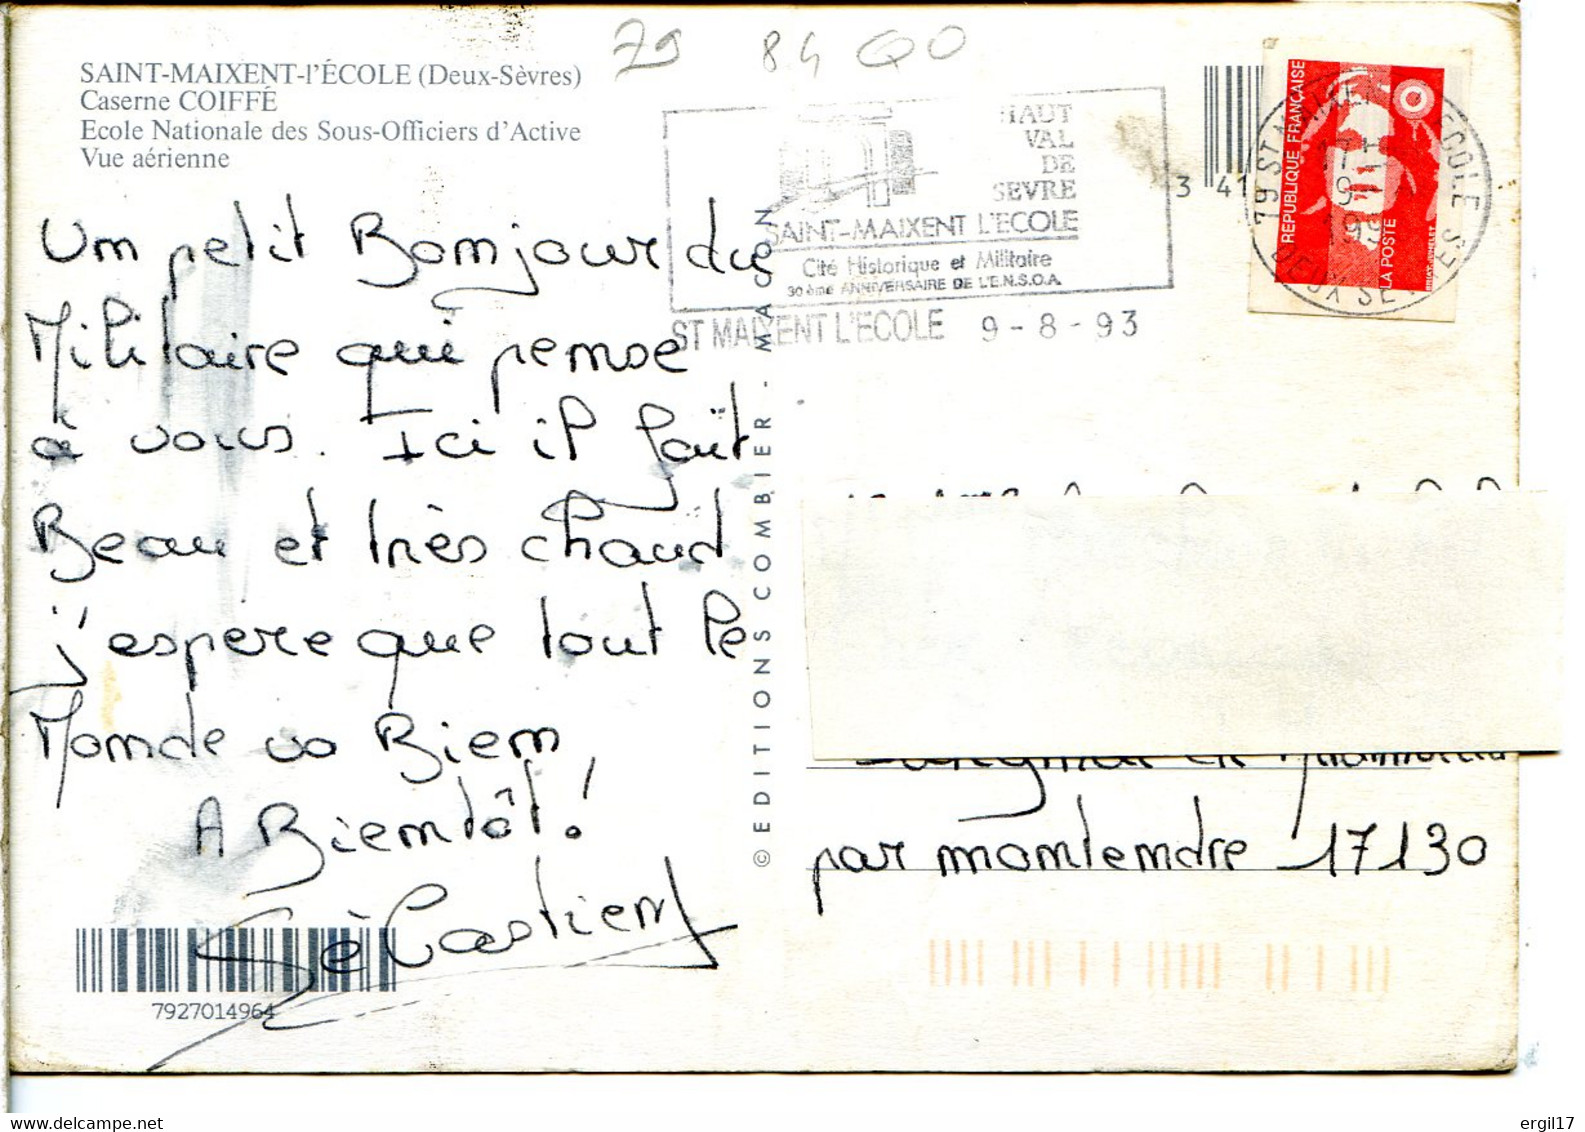 79 84 QO
SAINT-MAIXENT-l'ÉCOLE (Deux-Sèvres)
Caserne COIFFÉ
Ecole Nationale des Sous-Officiers d'Active
Vue aérienne
Un petit Bonjour du
Militaire qui pense
à vous. Ici il fait
Beau et très chaud
j'espere que tout le
Monde va Bien
A Bientôt!
Sèbastien
7927014964
© EDITIONS COMBIER - MACON
HAUT
VAL
DE
SEVRE
SAINT-MAIXENT L'ECOLE
Cité Historique et Militaire
30ème ANNIVERSAIRE DE L'E.N.S.O.A.
ST MAIXENT L'ECOLE 9-8-93
3 41
79 ST MAIXENT L'ECOLE
17H
9-8
199
DEUX SEVRES
REPUBLIQUE FRANÇAISE
LA POSTE
par montendre 17130
ergil17